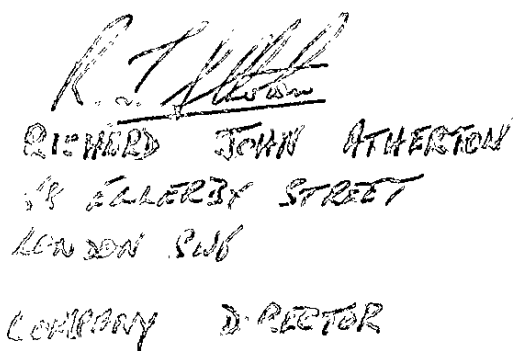 R. J. Atherton
RICHARD JOHN ATHERTON
ELLERBY STREET
LONDON SW6
COMPANY DIRECTOR